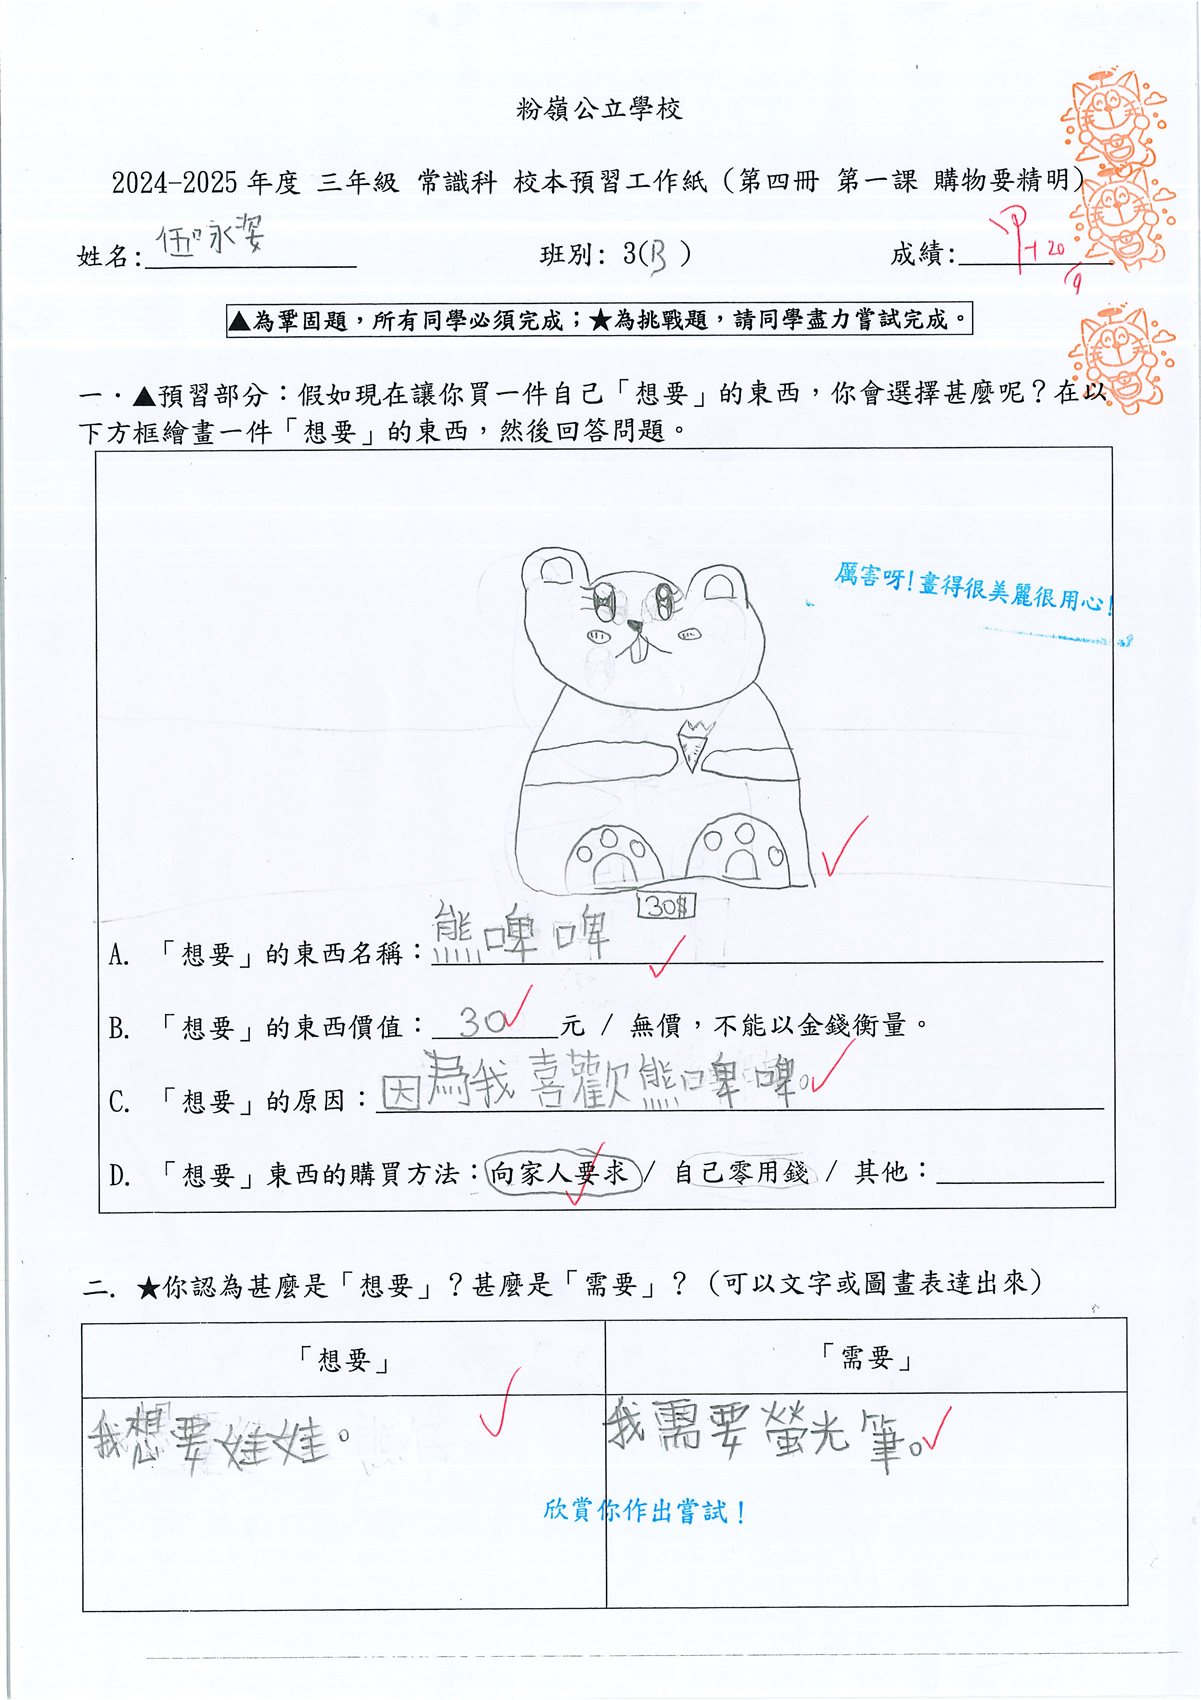 粉嶺公立學校
2024-2025 年度 三年級 常識科 校本預習工作紙 (第四冊 第一課 購物要精明)
姓名: 伍咏姿 班別: 3(B) 成績: 甲+20
▲為鞏固題，所有同學必須完成；★為挑戰題，請同學盡力嘗試完成。
一．▲預習部分：假如現在讓你買一件自己「想要」的東西，你會選擇甚麼呢？在以
下方框繪畫一件「想要」的東西，然後回答問題。
厲害呀!畫得很美麗很用心!
30$
A. 「想要」的東西名稱：熊啤啤
B. 「想要」的東西價值：30元 / 無價，不能以金錢衡量。
C. 「想要」的原因：因為我喜歡熊啤啤。
D. 「想要」東西的購買方法：向家人要求 / 自己零用錢 / 其他：
二. ★你認為甚麼是「想要」？甚麼是「需要」？ (可以文字或圖畫表達出來)
「想要」 「需要」
我想要娃娃。 我需要螢光筆。
欣賞你作出嘗試！